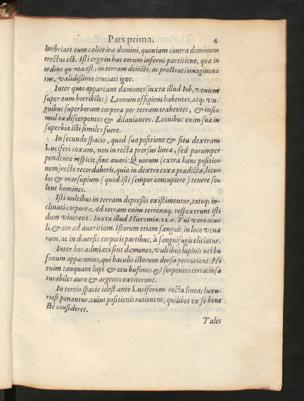 Pars prima. 4
Inebriate eum calice ira domini, quoniam contra dominum
erectus est. Isti ergo in hac eorum inferni particula, qua in
ordine quinta est: in terram deiecti, ac prostrati imaginem
tur, validissimo cruciati igne.
Inter quos appareant damones (iuxta illud Iob, venient
super eum horribiles) Leonum effigiem habentes, atque un-
guibus superborum corpora per terram trahentes, & insi-
mul ea discerpentes & dilaniantes. Leonibus enim sua in
superbia isti similes fuere.
In secundo spacio, quod sua positione & situ dextram
Luciferi coxam, non in recta prorsus linea, sed paramper
pendente respicit, sint avari: Quorum (extra hanc positio-
nem) recte recordaberis, quia in dextro coxa pradicta, locu-
los & marsupium (quod isti semper concupiere) tenere so-
lent homines.
Isti vultibus in terram depressis existimentur, totoque in-
clinati corpore. Ad terram enim
dum viverent. Iuxta illud Hieremia.22.c. Tui vero ocu-
li, & cor ad avaritiam. Istorum etiam sanguis, in loco vena
rum, ac in diversis corporis partibus, à sanguisugis eliciatur.
Inter hos admixti sint damones, vultibus lupinis vel bu
fonum apparentes, qui baculis illorum dorsa percutiant. Hi
enim tanquam lupi & ceu bufones & serpentes terra: insa
turabiles auro & argento extiterunt.
In tertio spacio idest ante Luciferum recta linea; luxu-
riosi ponantur, cuius positionis rationem, quilibet ex se hone
stè consideret.
Tales